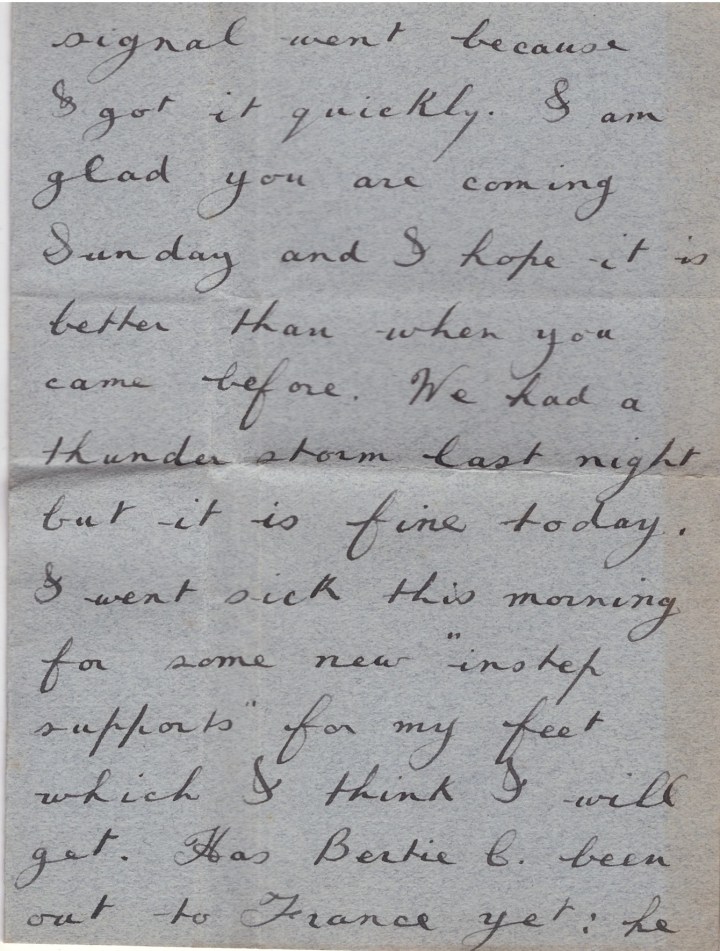 signal went because
I got it quickly. I am
glad you are coming
Sunday and I hope it is
better than when you
came before. We had a
thunder storm last night
but it is fine today.
I went sick this morning
for some new "instep
supports" for my feet
which I think I will
get. Has Bertie C. been
out to France yet: he